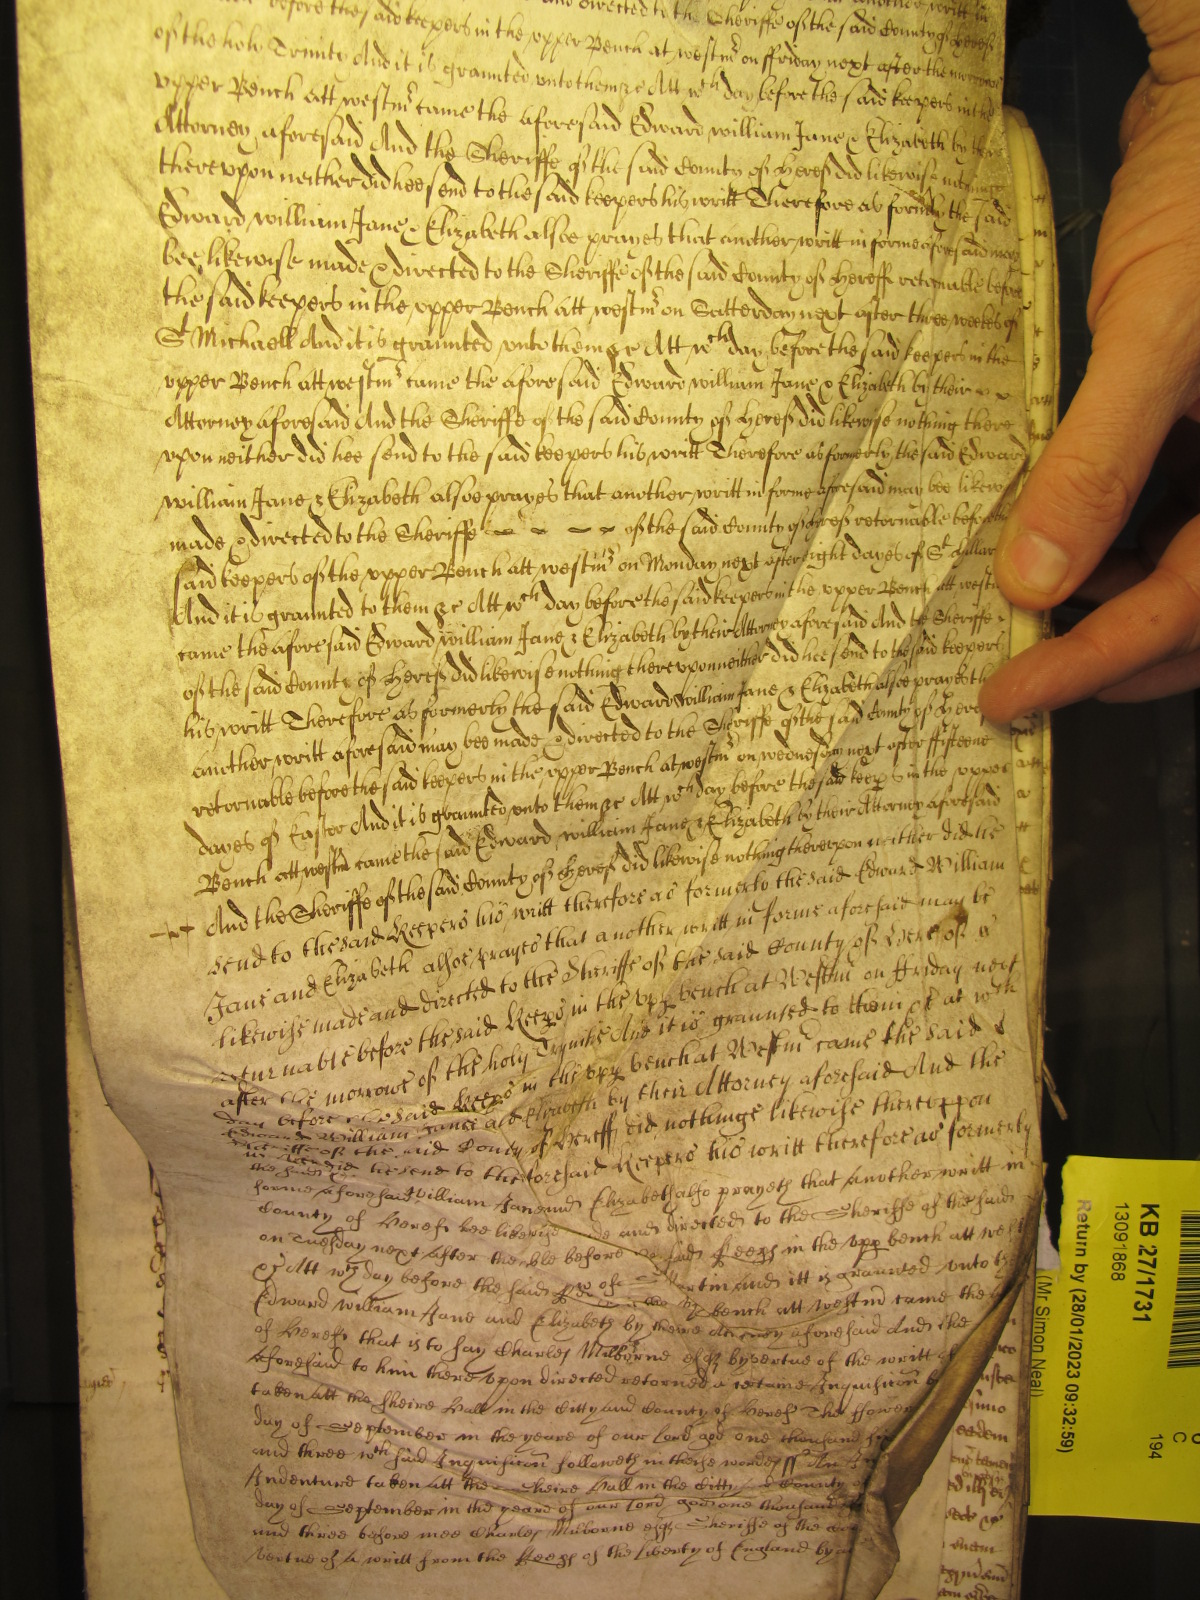 before the said keepers in the upper Bench at westmr on ffriday next after the morrowe
of the holy Trinity And it is graunted unto them &c Att wch day before the said keepers in the
upper Bench att westmr came the aforesaid Edward william Jane & Elizabeth by their
Attorney aforesaid And the Sheriffe of the said County of Heref did likewise nothinge
thereupon neither did hee send to the said keepers his writt Therefore as formerly the said
Edward william Jane & Elizabeth alsoe prayes that another writt in forme aforesaid may
bee likewise made & directed to the Sheriffe of the said County of Hereff retornable before
the said keepers in the upper Bench att westmr on Satterday next after three weekes of
St Michaell And it is graunted unto them &c Att wch day before the said keepers in the
upper Bench att westmr came the aforesaid Edward william Jane & Elizabeth by their
Attorney aforesaid And the Sheriffe of the said County of Heref did likewise nothing there
upon neither did hee send to the said keepers his writt Therefore as formerly the said Edward
william Jane & Elizabeth alsoe prayes that another writt in forme aforesaid may bee likewise
made & directed to the Sheriffe of the said County of Heref retornable before the
said keepers of the upper Bench att westmr on Monday next after eight dayes of St Hillar
And it is graunted to them &c Att wch day before the said keepers in the upper Bench att westmr
came the aforesaid Edward william Jane & Elizabeth by their Attorney aforesaid And the Sheriffe
of the said County of Heref did likewise nothing thereupon neither did hee send to the said keepers
his writt Therefore as formerly the said Edward william Jane & Elizabeth alsoe prayes th
another writt aforesaid may bee made & directed to the Sheriffe of the said County of Heref
retornable before the said keepers in the upper Bench at westmr on wednesday next after ffifteene
dayes of Easter And it is graunted unto them &c Att wch day before the said keeps in the upper
Bench att westm came the said Edward william Jane & Elizabeth by their Attorney aforesaid
And the Sheriffe of the said County of Heref did likewise nothing thereupon neither did he
send to the said Keepers his writt therefore as formerly the said Edward William
Jane and Elizabeth alsoe prayes that another writt in forme aforesaid may be
likewise made and directed to the Sheriffe of the said County of Heref
returnable before the said Keeps in the upp bench at Westmr on ffriday next
after the morrowe of the holy Trynitie And it is graunted to them &c at wch
day before the said Keeps in the upp bench at Westmr came the said
Edward William Jane and Elizabeth by their Attorney aforesaid And the
Sheriffe of the said County of Hereff did nothinge likewise thereuppon
he send to the foresaid Keepers his writt therefore as formerly
the said William Jane and Elizabeth also prayeth that Another writt in
forme aforesaid and directed to the Sheriffe of the said
County of Herefs bee likewise Keeps in the upp bench att west
on Tuesday next After before and itt is graunted unto th
&c Att wch day before the said bench att westmr came the
Edward William Jane and Elizabeth by theire aforesaid And the
of Herefs that is to say Charles Milborne esqr by vertue of the writt
Aforesaid to him there upon directed retorned a certaine Inquisicon
taken att the Sheire Hall in the Citty and County of Herefs The
day of September in the yeare of our Lord god one thousand
and three wch said Inquisicon followeth in theise wordes ss An
Indenture taken att the Sheire Hall in the Citty and County of
day of September in the yeare of our Lord god one thousand
and three before mee Charles Milborne esqr Sheriffe of the
vertue of A writt from the Keeps of the liberty of England by
KB 27/1731
13091868
Return by (28/01/2023 09:32:59)
(Mr Simon Neal)
194
C